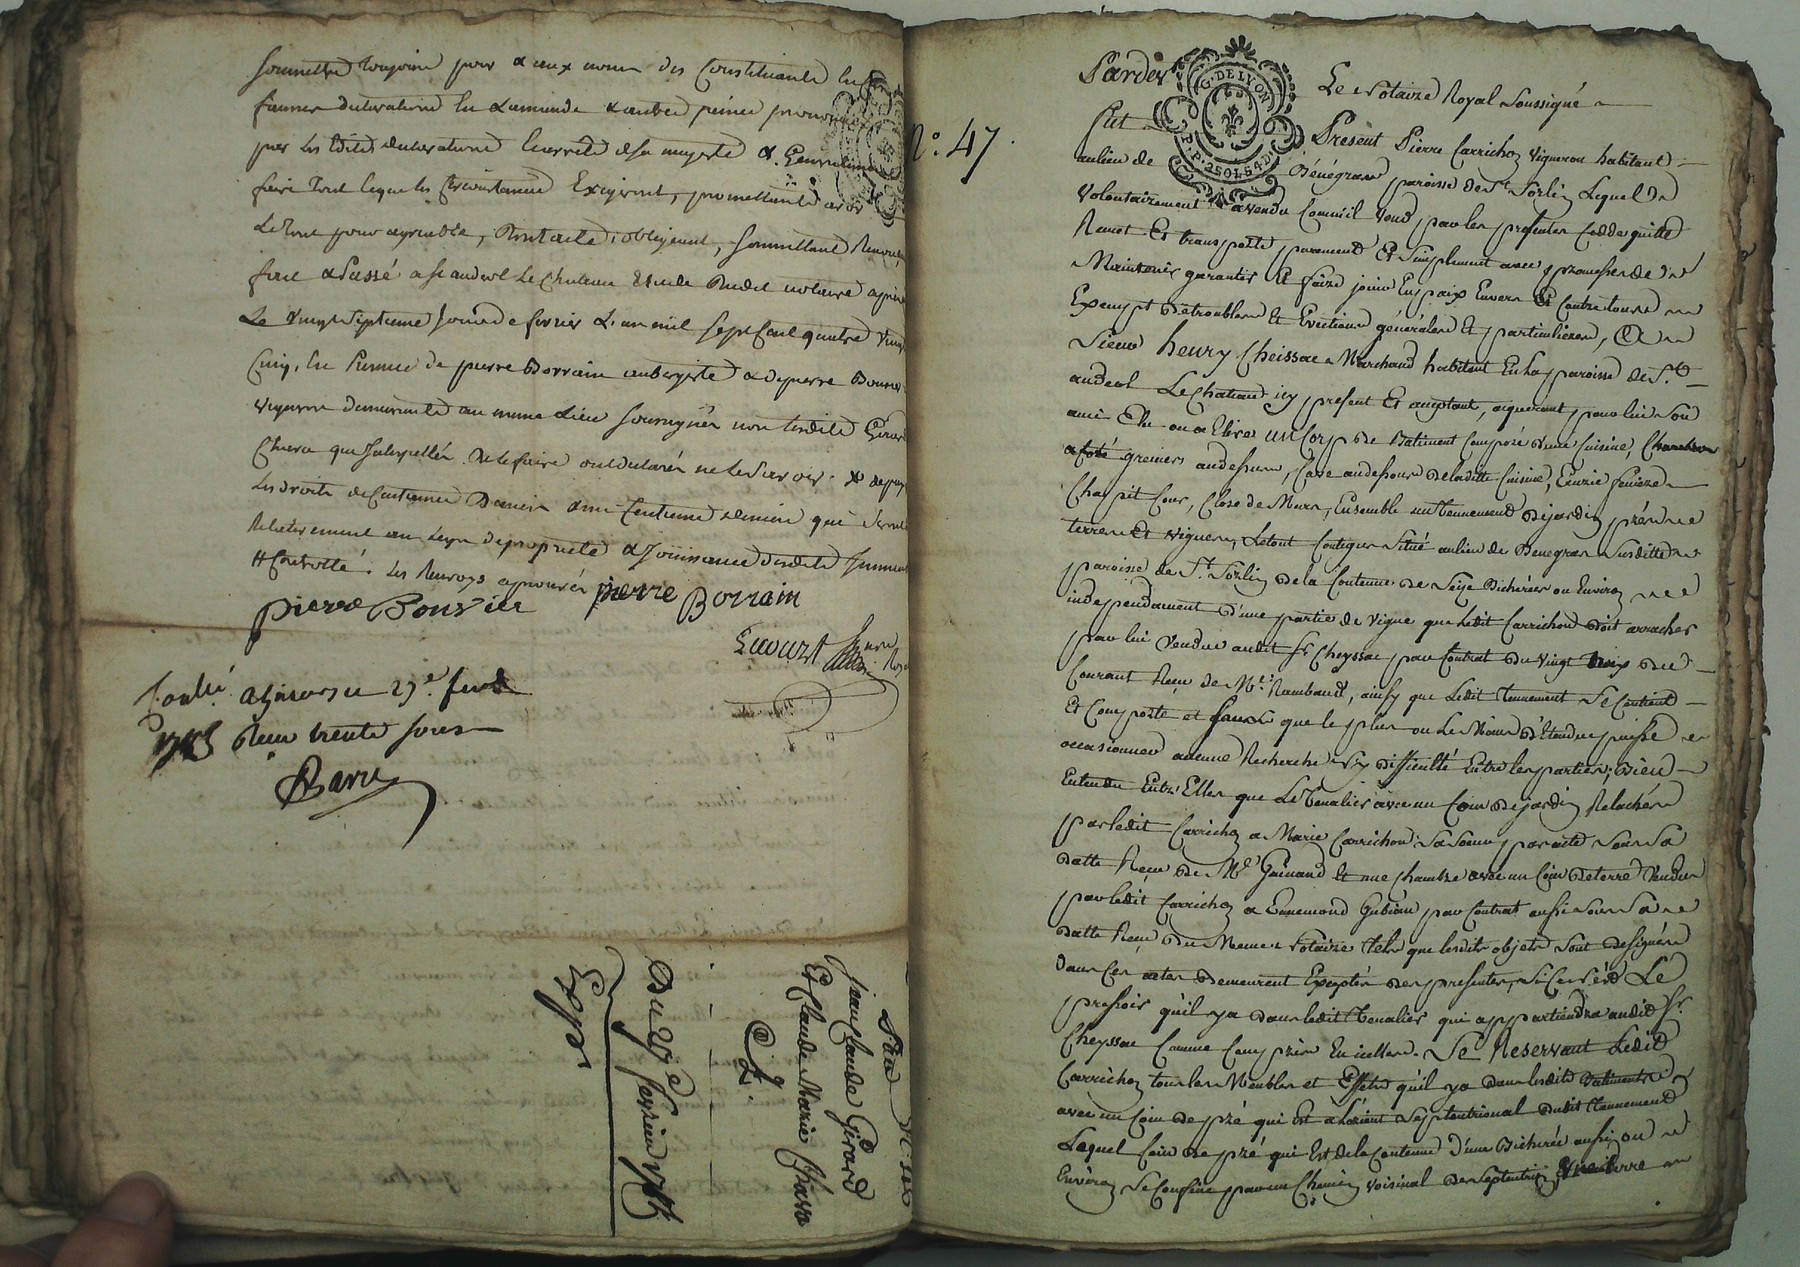 soumettre toujours pour & aux noms des Constituants
fausses declarations en L'amende & autres peines prononcées
par les Edits declarations & arrêts de sa majesté &. Generalement
faire tout ce que les Circonstances Exigeront, promettants avoir
Le tout pour agreable, dont acte, obligeant, soumettant Renonçant
fait & Passé a st andeol Le Chateau Etude dudit notaire
Le vingt septieme jour de fevrier L'an mil sept Cent quatre vingt
Cinq, En Presence de pierre Borrain aubergiste & de pierre Bouvier
vigneron demeurants au meme Lieu soussignés non lesdits Girard
Chara qui Interpellés de le faire ont declarés ne le savoir. &
Les droits de
Relativement aux de propriété & Jouissance desdits
Controllé. Les Renvoys aprouvés
pierre Bouvier pierre Borrain
Ecourt
Con.lé a Givors le 27.e fevr
1785 Reçu trente sous
Barri
jean claude Girard
Et Claude Marie Chara
Du 27.e fevrier 1785
Exp.
Pardev.t Le Notaire Royal Soussigné
N.o 47.
G. DE LYON
Fut Present Pierre Carrichon vigneron habitant
au lieu de Bénégran paroisse de S.t Sorlin Lequel
Volontairement a vendu Comme il vend par les presentes Cedde quitte
Remet Et transporte purement Et Simplement avec promesse de
Maintenir garantir Et faire jouir En paix Envers Et Contre tous
Exempt de troubles Et Evictions générales Et particulieres, A
Sieur henry Cheissac Marchand habitant En La paroisse de S.t
andeol Le Chateau icy present Et acceptant, aquerant pour lui Son
ami Elu ou a Elire un Corp de Batiment Composé d'une Cuisine, Chambre
a Coté greniers au dessus, Cave au dessous de la ditte Cuisine, Ecurie feniere
Chapit Cour, Close de Murs, Ensemble un tennement de jardin, prés
terres Et vignes, Le tout Contigu Situé au lieu de Benegran Susditte
paroisse de S.t Sorlin de la Contenue de Seize Bicherées ou Environ
independament d'une partie de vigne que ledit Carrichon doit arracher
par lui vendue audit Sr Cheyssac par Contrat du vingt du
Courant Reçu de M.e Rambaud, ainsy que ledit tennement Se Contient
Et Comporte et Sans que le plus ou Le Moins d'Etendue puisse
occasionner aucune Recherche ny difficulté Entre les parties; Bien
Entendu Entr'Elles que Le tenalier avec un Coin de jardin Relachés
par ledit Carrichon a Marie Carrichon Sa Soeur par acte Sous Sa
datte Reçu de M.e Guinand Et une chambre avec un Coin de terre Vendus
par ledit Carrichon a Ennemond Gubian par Contrat aussi Sous Sa
datte Reçu du Meme Notaire tels que lesdits objets Sont designés
dans Ces actes demeurent Exceptés des presentes, Si Ce n'est Le
pressoir qu'il y a dans ledit tenalier qui appartiendra audit Sr
Cheyssac Comme Compris En icelles. Se Reservant Ledit
Carrichon tous les Meubles et Effets qu'il y a dans lesdits Batiments
avec un Coin de pré qui Est a l'orient Septentrional dudit tennement
Lequel Coin de pré qui Est de la Contenue d'une Bicherée aussi ou
Environ Se Confine par un Chemin voisinal de Septentrion